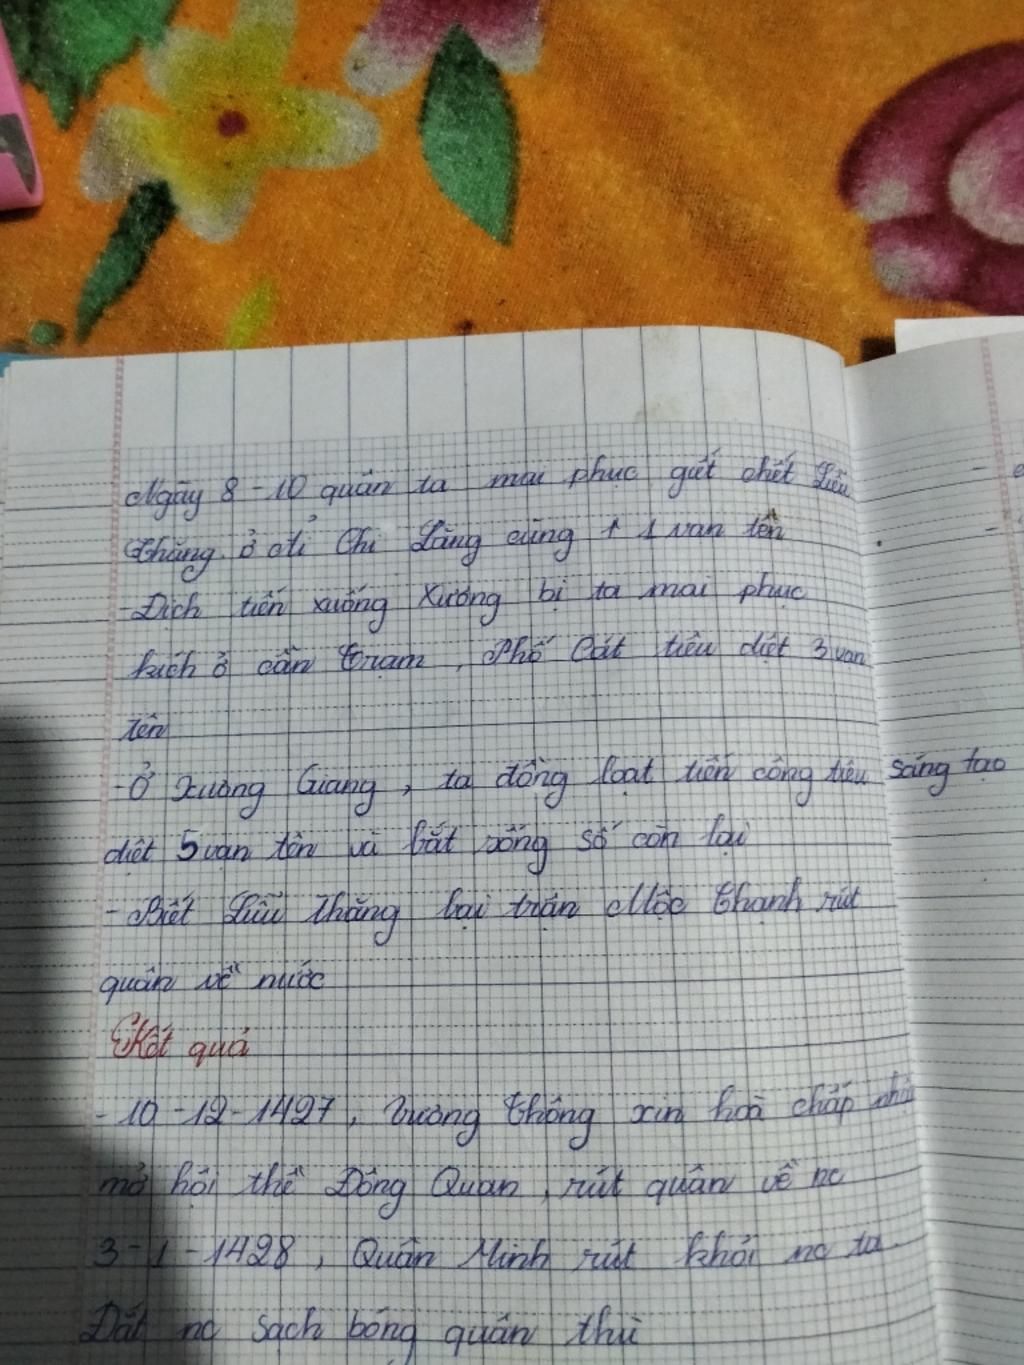 Ngày 8-10 quân ta mai phục giết chết Liễu
Thăng ở ải Chi Lăng cùng 1 vạn tên
- Địch tiến xuống Xương bị ta mai phục
kích ở cần Trạm, Phố Cát tiêu diệt 3 vạn
tên
- Ở Xương Giang, ta đồng loạt tiến công tiêu sáng tạo
diệt 5 vạn tên và bắt sống số còn lại
- Biết Liễu Thăng bại trận Mộc Thạnh rút
quân về nước
Kết quả
- 10-12-1427, Vương Thông xin hoà chấp nhận
mở hội thề Đông Quan, rút quân về nc
3-1-1428, Quân Minh rút khỏi nc ta
Đất nc sạch bóng quân thù